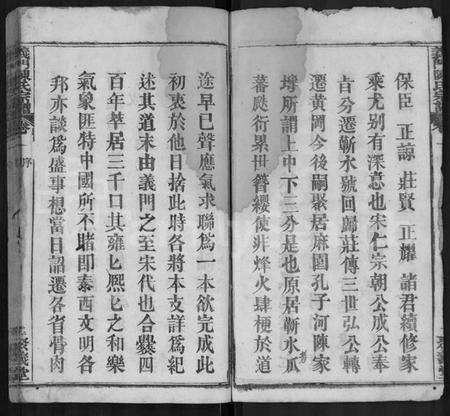 保臣 正諒 莊賢 正耀 諸君續修家
乘尤别有深意也宋仁宗朝公成公奉
旨分遷蘄水號回歸莊傳三世弘公轉
遷黄岡今後嗣聚居麻園孔子河陳家
塆所謂上中下三分是也原居蘄水瓜
蕃衍累世簪纓使非烽火肆梗於道
途早已聲應氣求聯為一本欲完成此
初衷於他日捨此時各將本支詳為紀
述其道末由義門之至宋代也合爨四
百年萃居三千口其雍匕熙匕之和樂
氣象匪特中國所不睹即泰西文明各
邦亦談為盛事想當日詔遷各省骨肉
義門陳氏宗譜
卷一
序
聚義堂